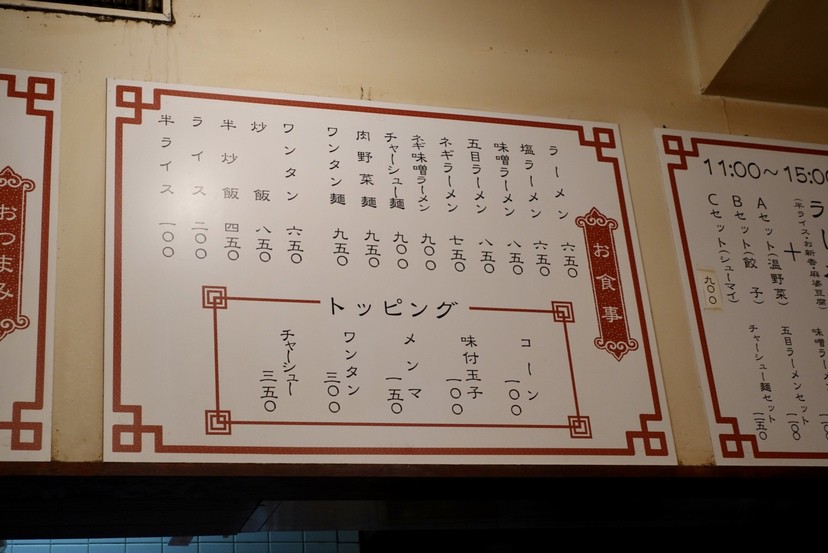 お食事
ラーメン 六五〇
塩ラーメン 六五〇
味噌ラーメン 八五〇
五目ラーメン 八五〇
ネギラーメン 七五〇
ネギ味噌ラーメン 九〇〇
チャーシュー麺 九〇〇
肉野菜麺 九五〇
ワンタン麺 九五〇
ワンタン 六五〇
炒飯 八五〇
半炒飯 四五〇
ライス 二〇〇
半ライス 一〇〇
トッピング
コーン 一〇〇
味付玉子 一〇〇
メンマ 一五〇
ワンタン 三〇〇
チャーシュー 三五〇
おつまみ
11:00〜15:00
＋
(半ライス・お新香・麻婆豆腐)
Aセット(温野菜)
Bセット(餃子)
Cセット(シューマイ)
九〇〇
五目ラーメンセット
チャーシュー麺セット